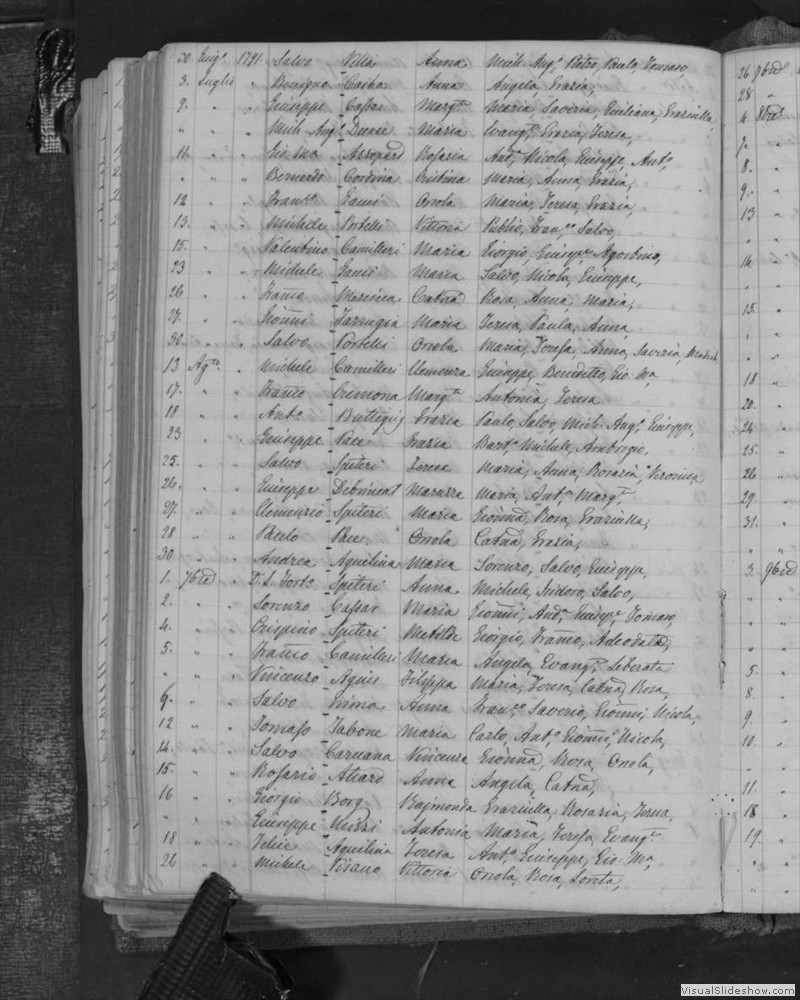 30. Giug.o 1791. Salvo Villa Anna Mich. Ang.o Pietro, Paulo, Tomaso,
3. Luglio " Benigno Anna Angela, Grazia,
9. " " Giuseppe Cassar Marg.ta Maria, Saveria, Giuliana, Graziulla,
" " " Mich. Ang.o Maria Evang.ta Grazia, Teresa,
11. " " Gio Ma Azzopard Rosaria Ant.o Nicola, Giuseppe, Ant.o,
" " " Bernardo Cordina Cristina Maria, Anna, Grazia,
12 " " Fran.co Gauci Orsola Maria, Teresa, Grazia,
13. " " Michele Portelli Vittoria Publio, Fran.co Salvo,
15. " " Valentino Camilleri Maria Giorgio, Giuseppe Agostino,
23 " " Michele Gauci Maria Salvo, Nicola, Giuseppe,
26 " " Franco Catna Rosa, Anna, Maria,
27. " " Gionni Farrugia Maria Teresa, Paula, Anna
30. " " Salvo Portelli Orsola Maria, Teresa, Anna, Saveria,
13 Ag.to " Michele Camilleri Clemenza Giuseppe, Benedetto, Gio: Ma,
17. " " Franco Cremona Marg.ta Antonia, Teresa
18 " " Ant.o Buttigig Grazia Paulo, Salvo, Mich. Ang.o Giuseppe,
23 " " Giuseppe Pace Grazia Bart.o Michele, Ambrogio,
25. " " Salvo Spiteri Teresa Maria, Anna, Rosaria, Veronica
26. " " Giuseppe Debrincat Maruzza Maria, Ant.a Marg.ta
27. " " Clemenzio Spiteri Maria Gionna, Rosa, Graziulla,
28 " " Paulo Pace Orsola Catna, Grazia,
30 " " Andrea Aquilina Maria Lorenzo, Salvo, Giuseppe,
1. 7bre " D. S. Fort.o Spiteri Anna Michele, Isidoro, Salvo,
2. " " Lorenzo Cassar Maria Gionni, And.a Giuseppe, Tomaso,
4. " " Crispino Spiteri Matilde Giorgio, Franco, Adeodato,
5. " " Franco Camilleri Maria Angela, Evang.ta Liberata
" " " Vincenzo Agius Filippa Maria, Teresa, Catna, Rosa,
9. " " Salvo Anna Fran.co Saverio, Gionni, Nicola,
12 " " Tomaso Tabone Maria Carlo, Ant.o Gionni, Nicola,
14. " " Salvo Caruana Vincenza Gionna, Rosa, Orsola,
15. " " Rosario Attard Anna Angela, Catna,
16 " " Giorgio Borg Rajmonda Graziulla, Rosaria, Teresa,
" " " Giuseppe Mizzi Antonia Maria, Teresa, Evang.ta
18 " " Felice Aquilina Teresa Ant.o Giuseppe, Gio: Ma,
26 " " Michele Pisano Vittoria Orsola, Rosa, Loreta,
26 7bre
28 "
4. 8bre
7. "
8. "
9. "
13 "
" "
14. "
" "
15. "
" "
" "
18 "
20. "
24 "
25. "
26 "
29. "
31. "
" "
3. 9bre
" "
" "
" "
5. "
8. "
9. "
10. "
" "
11. "
18 "
19. "
" "
" "
VisualSlideshow.com